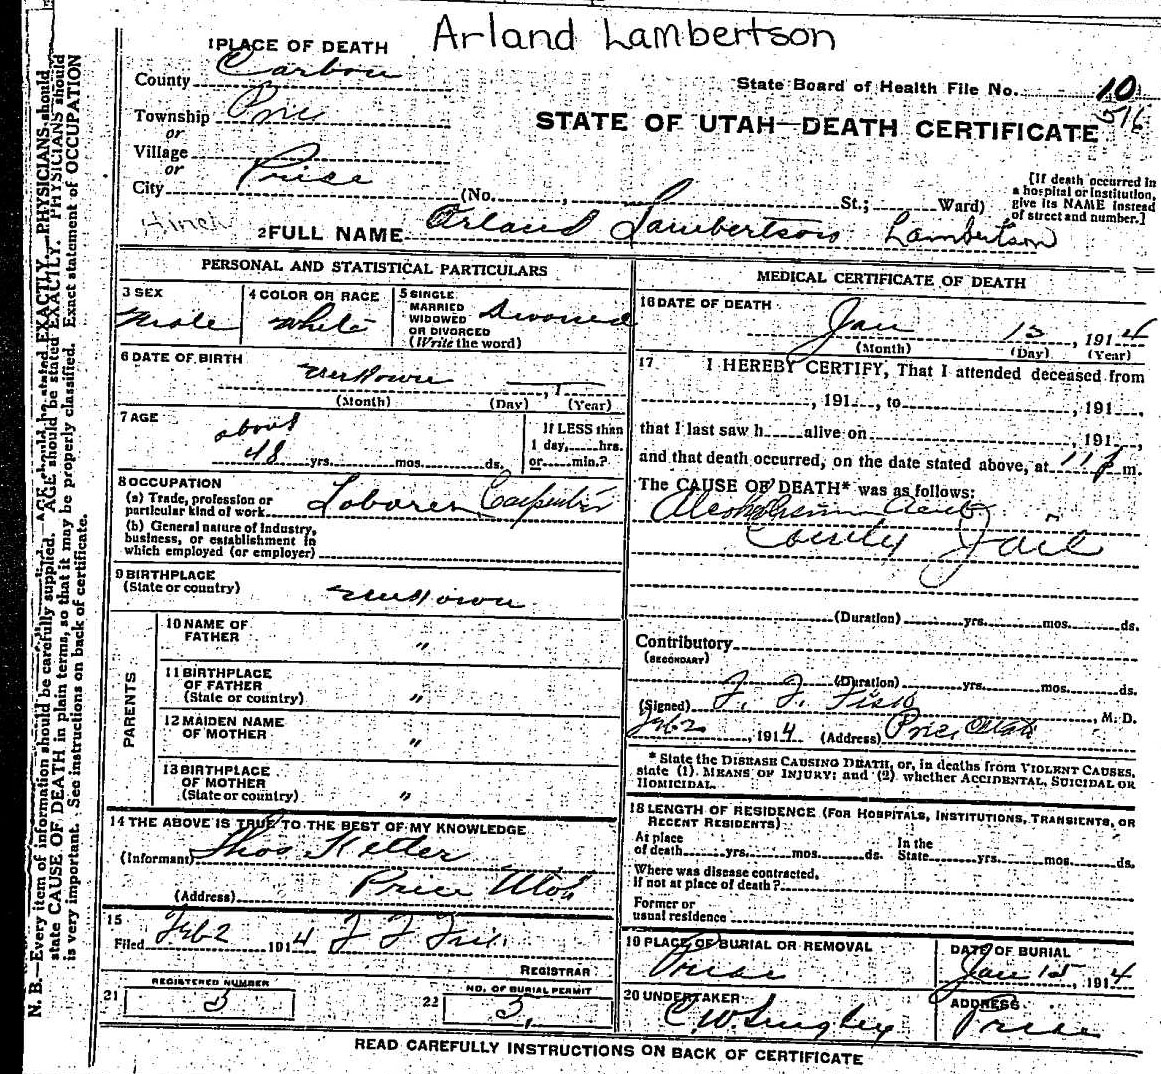 Arland Lambertson
1 PLACE OF DEATH
County Carbon
State Board of Health File No. 10
516
Township Price
or
STATE OF UTAH—DEATH CERTIFICATE
Village
or
City Price (No. , St.; Ward)
[If death occurred in
a hospital or institution,
give its NAME instead
of street and number.]
2 FULL NAME Orland Lambertson Lambertson
PERSONAL AND STATISTICAL PARTICULARS
3 SEX
Male
4 COLOR OR RACE
White
5 SINGLE
MARRIED
WIDOWED
OR DIVORCED
(Write the word)
Divorced
6 DATE OF BIRTH
unknown , 1
(Month) (Day) (Year)
7 AGE
about
48 yrs. mos. ds.
If LESS than
1 day, hrs.
or min.?
8 OCCUPATION
(a) Trade, profession or
particular kind of work Laborer Carpenter
(b) General nature of industry,
business, or establishment in
which employed (or employer)
9 BIRTHPLACE
(State or country) unknown
PARENTS
10 NAME OF
FATHER "
11 BIRTHPLACE
OF FATHER
(State or country) "
12 MAIDEN NAME
OF MOTHER "
13 BIRTHPLACE
OF MOTHER
(State or country) "
14 THE ABOVE IS TRUE TO THE BEST OF MY KNOWLEDGE
(Informant) Thos Keller
(Address) Price Utah
15
Filed Feb 2 1914 F F Fisk
REGISTRAR
21 REGISTERED NUMBER
3
22 NO. OF BURIAL PERMIT
3
MEDICAL CERTIFICATE OF DEATH
16 DATE OF DEATH
Jan 13, 1914
(Month) (Day) (Year)
17 I HEREBY CERTIFY, That I attended deceased from
, 191 , to , 191 ,
that I last saw h alive on , 191 ,
and that death occurred, on the date stated above, at 11 P m.
The CAUSE OF DEATH* was as follows:
Alcoholism Acute
County Jail
(Duration) yrs. mos. ds.
Contributory
(SECONDARY)
(Duration) yrs. mos. ds.
(Signed) F. F. Fisk , M. D.
Feb 2 , 1914 (Address) Price Utah
* State the DISEASE CAUSING DEATH, or, in deaths from VIOLENT CAUSES,
state (1) MEANS OF INJURY; and (2) whether ACCIDENTAL, SUICIDAL OR
HOMICIDAL.
18 LENGTH OF RESIDENCE (FOR HOSPITALS, INSTITUTIONS, TRANSIENTS, OR
RECENT RESIDENTS)
At place
of death yrs. mos. ds.
In the
State yrs. mos. ds.
Where was disease contracted,
if not at place of death?
Former or
usual residence
19 PLACE OF BURIAL OR REMOVAL
Price
DATE OF BURIAL
Jan 15, 1914
20 UNDERTAKER
C. W.
ADDRESS
Price
READ CAREFULLY INSTRUCTIONS ON BACK OF CERTIFICATE
N. B.—Every item of information should be carefully supplied. AGE should be stated EXACTLY. PHYSICIANS should
state CAUSE OF DEATH in plain terms, so that it may be properly classified. Exact statement of OCCUPATION
is very important. See instructions on back of certificate.